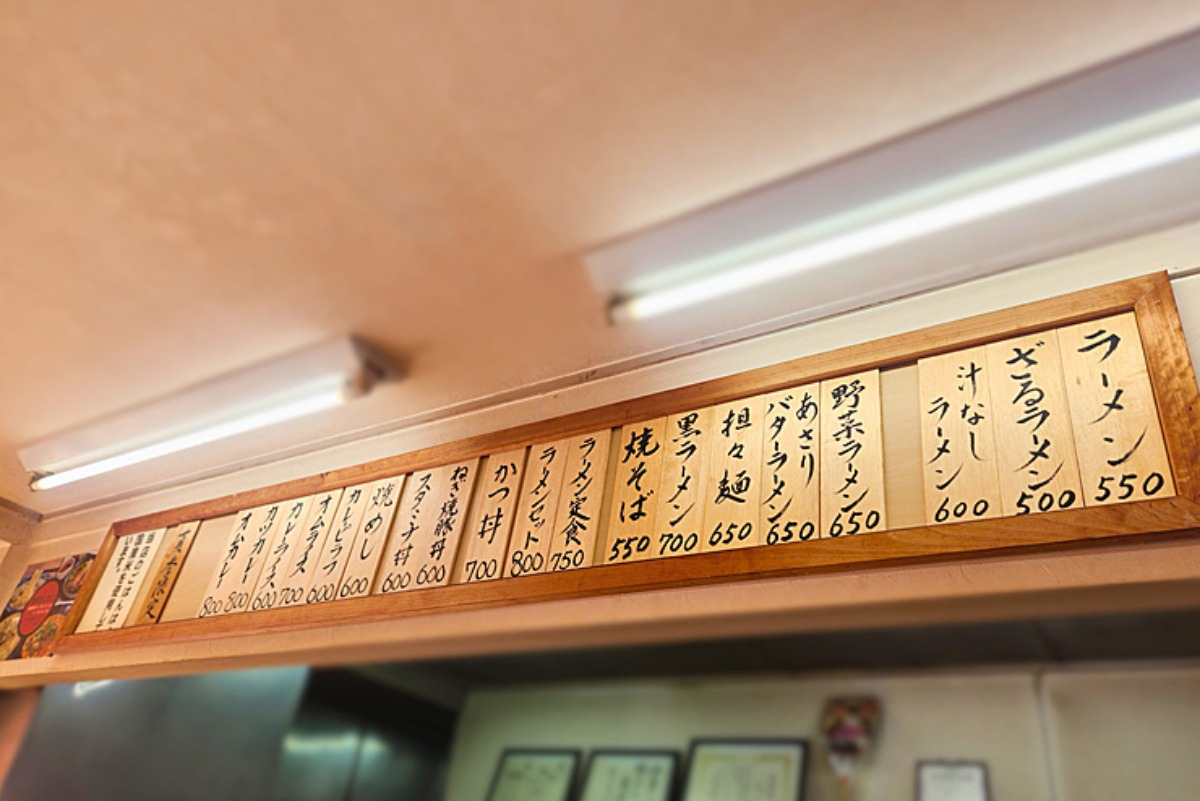 ラーメン
550
ざるラーメン
500
汁なし
ラーメン
600
野菜ラーメン
650
あさり
バターラーメン
650
担々麺
650
黒ラーメン
700
焼そば
550
ラーメン定食
750
ラーメンセット
800
かつ丼
700
ねぎ焼豚丼
600
スタミナ丼
600
焼めし
600
カレーピラフ
600
オムライス
700
カレーライス
600
カツカレー
800
オムカレー
800
当店のごはんは
います。